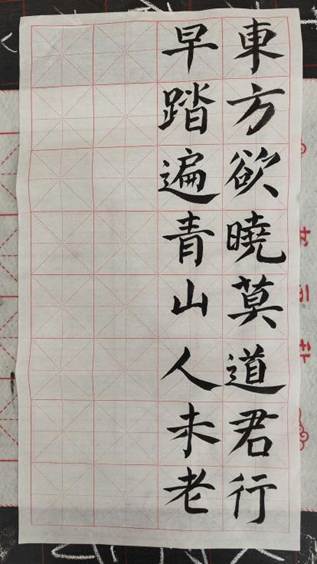 東方欲曉莫道君行
早踏遍青山人未老